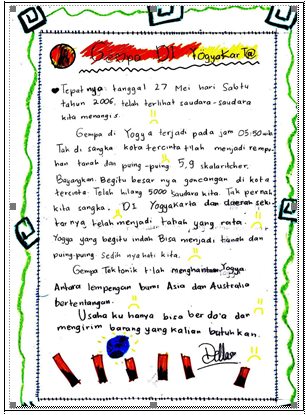 Gempa DI YogyaKarT@
Tepatnya tanggal 27 Mei hari Sabtu
tahun 2006. telah terlihat saudara-saudara
kita menangis.
Gempa di Yogya terjadi pada jam 05:50 wib
Tak di sangka kota tercinta tlah menjadi rempu-
han tanah dan puing-puing 5,9 skalaritcher.
Bayangkan. Begitu besar nya goncangan di kota
tercinta. Telah hilang 5000 saudara kita. Tak pernah
kita sangka. DI Yogyakarta dan daerah seki
tarnya telah menjadi tanah yang rata.
Yogya yang begitu indah Bisa menjadi tanah dan
puing-puing. Sedih nya hati kita.
Gempa Tektonik tlah menghantam Yogya
Antara lempengan bumi Asia dan Australia
bertentangan.
Usaha ku hanya bisa ber do'a dan
mengirim barang yang kalian butuhkan.